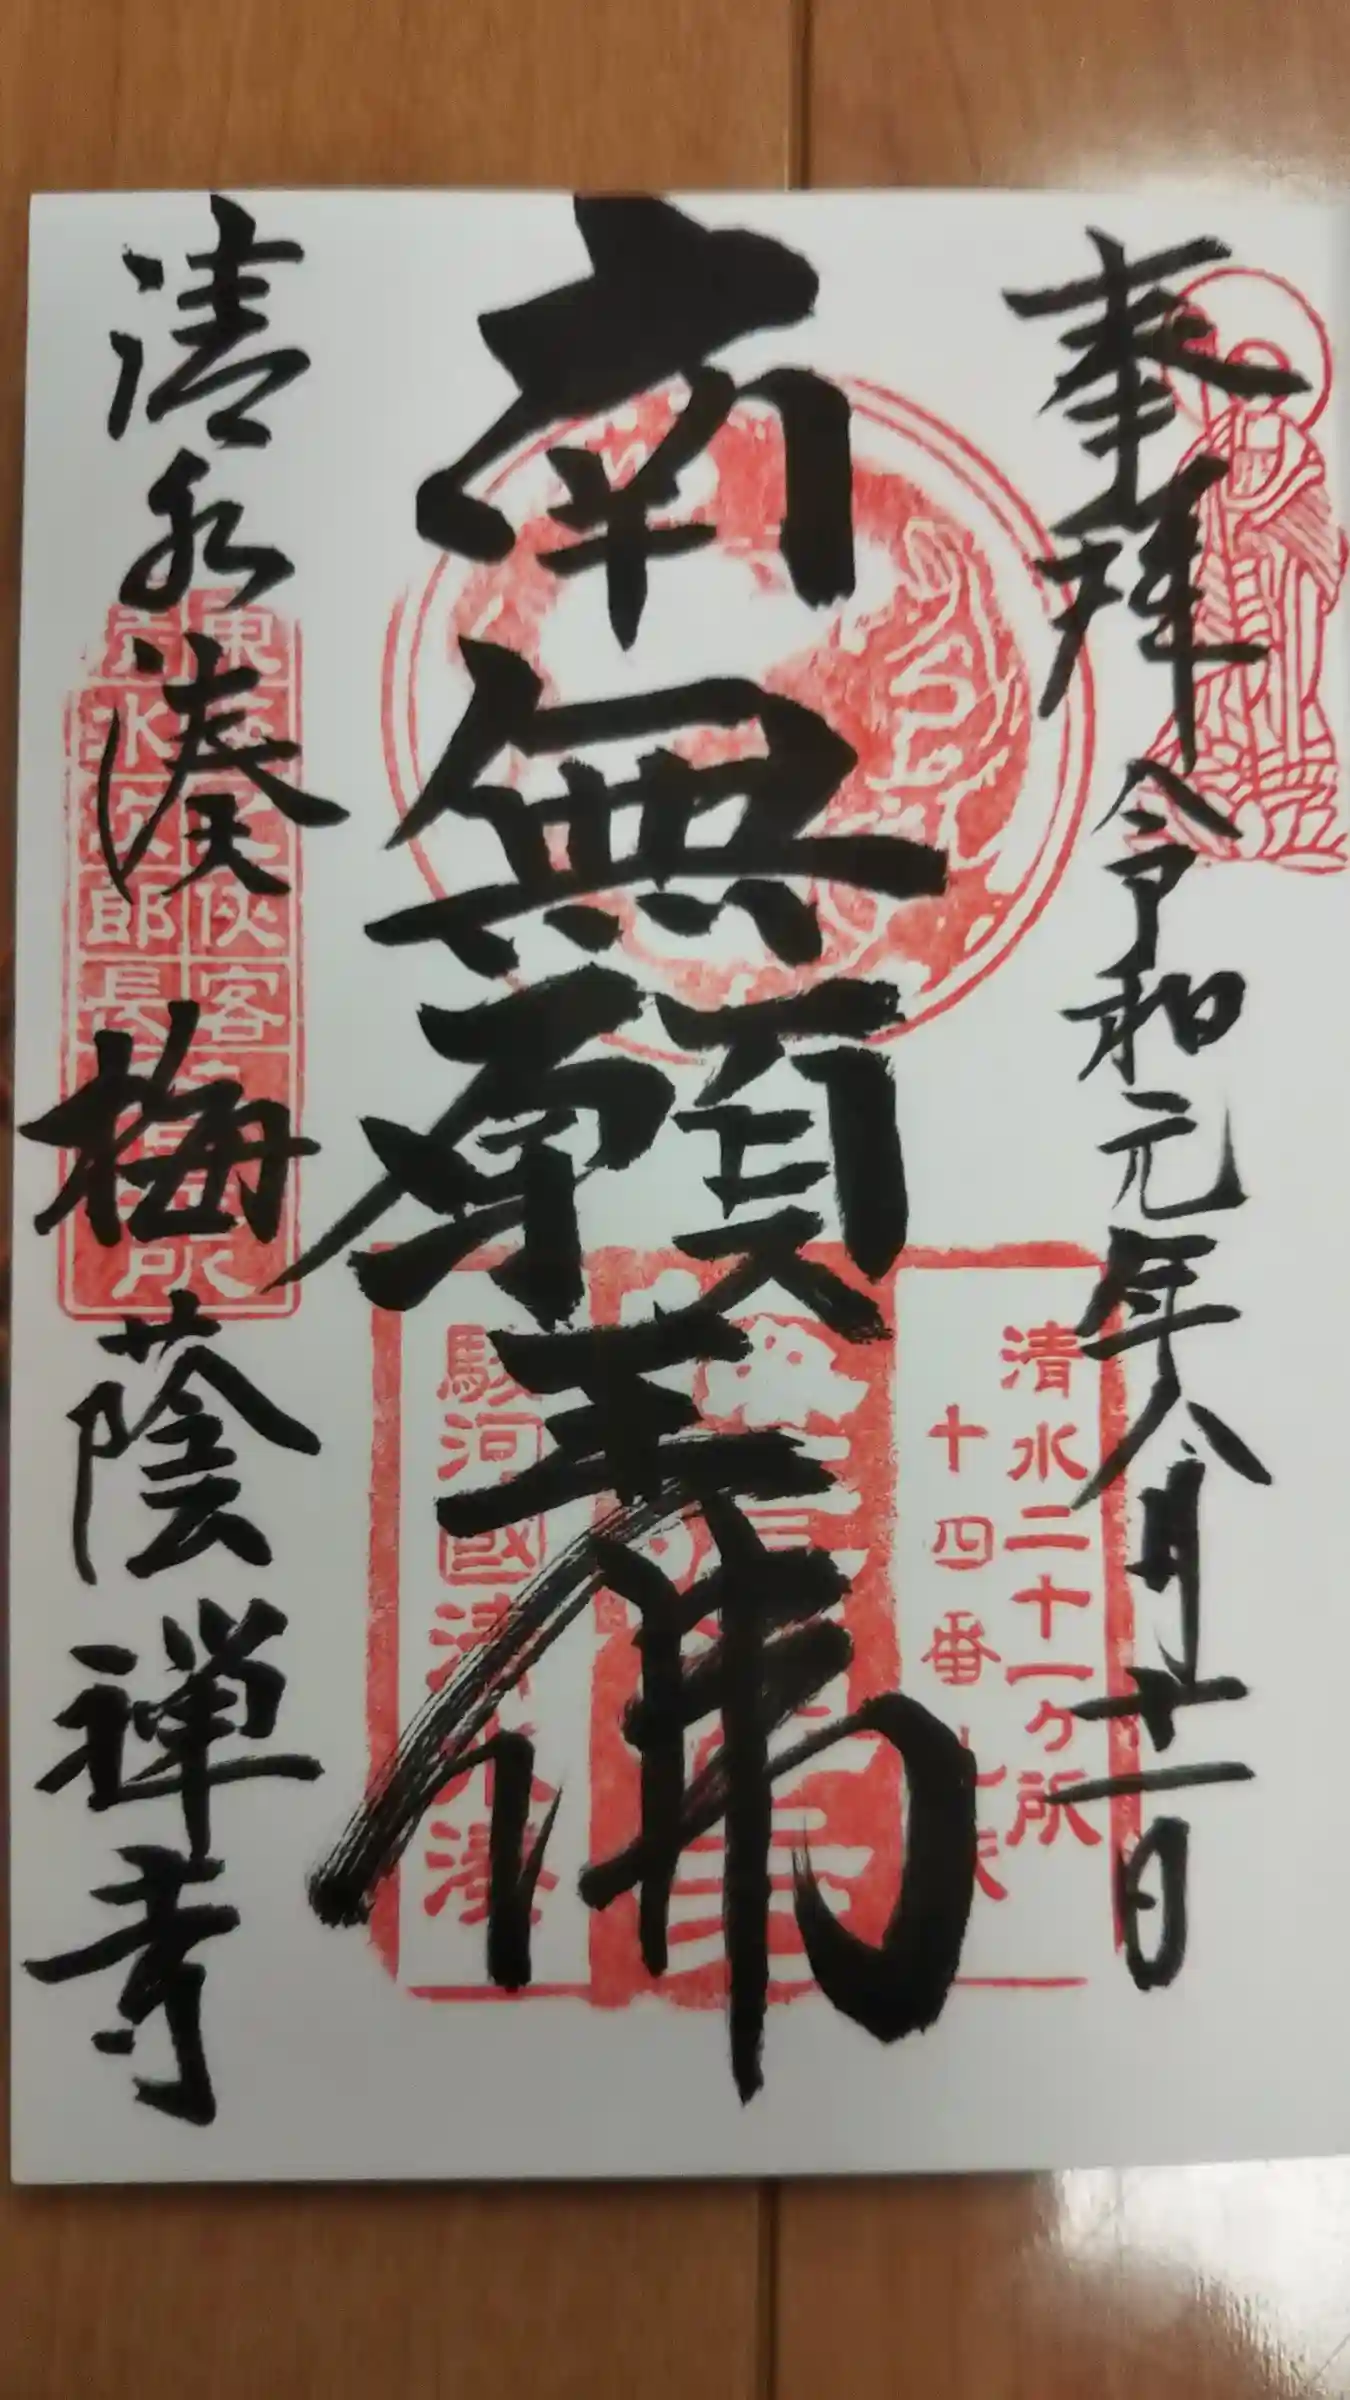 奉拝 令和元年八月廿一日
清水二十一ヶ所
十四番札
南無願王佛
駿河國清水湊
清水湊 梅蔭禅寺
侠客
水次郎長
所